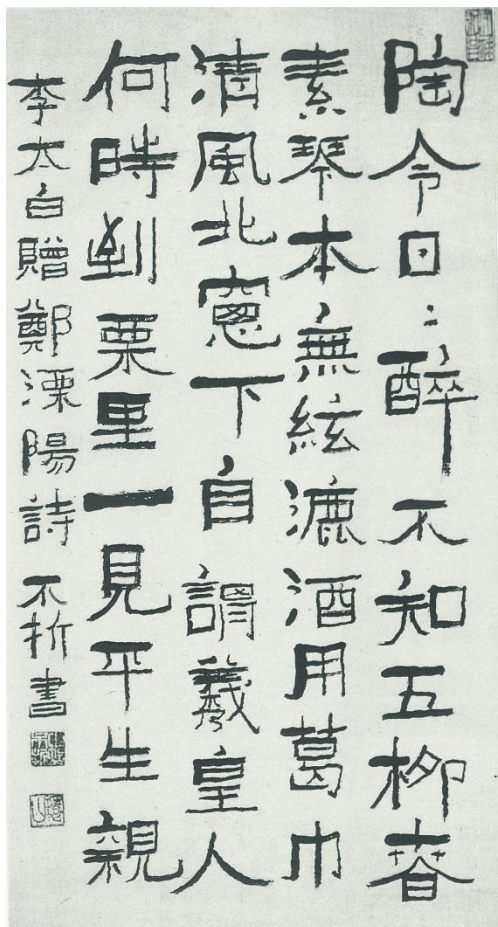 陶令日〻醉不知五柳春
素琴本無絃漉酒用葛巾
清風北窻下自謂羲皇人
何時到栗里一見平生親
李太白贈鄭溧陽詩 不折書